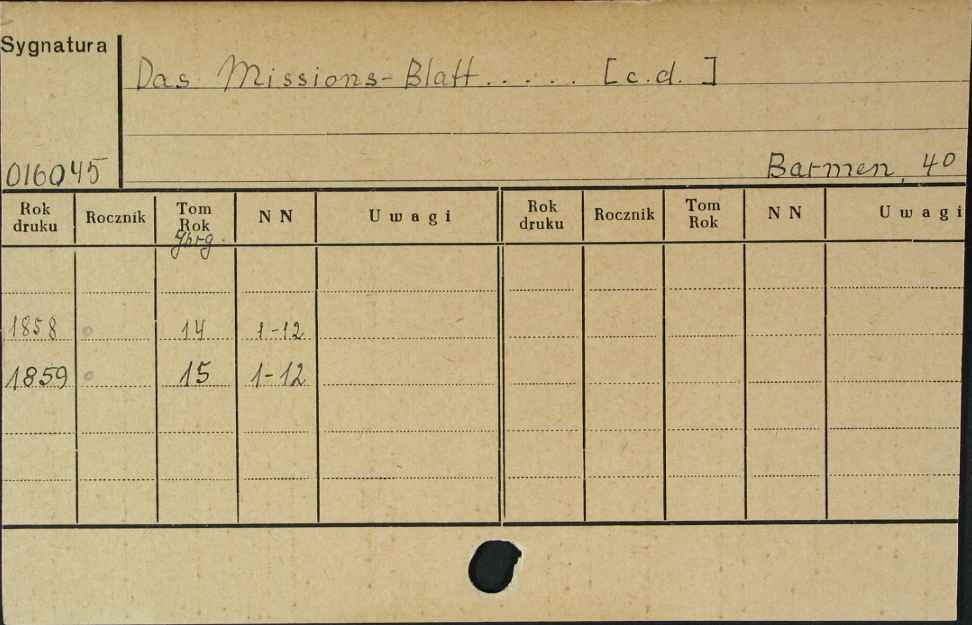 Sygnatura
Das Missions-Blatt..... [c.d.]
016045
Barmen, 40
Rok druku Rocznik Tom Rok NN Uwagi Rok druku Rocznik Tom Rok NN Uwagi
Jhrg.
1858 14 1-12
1859 15 1-12